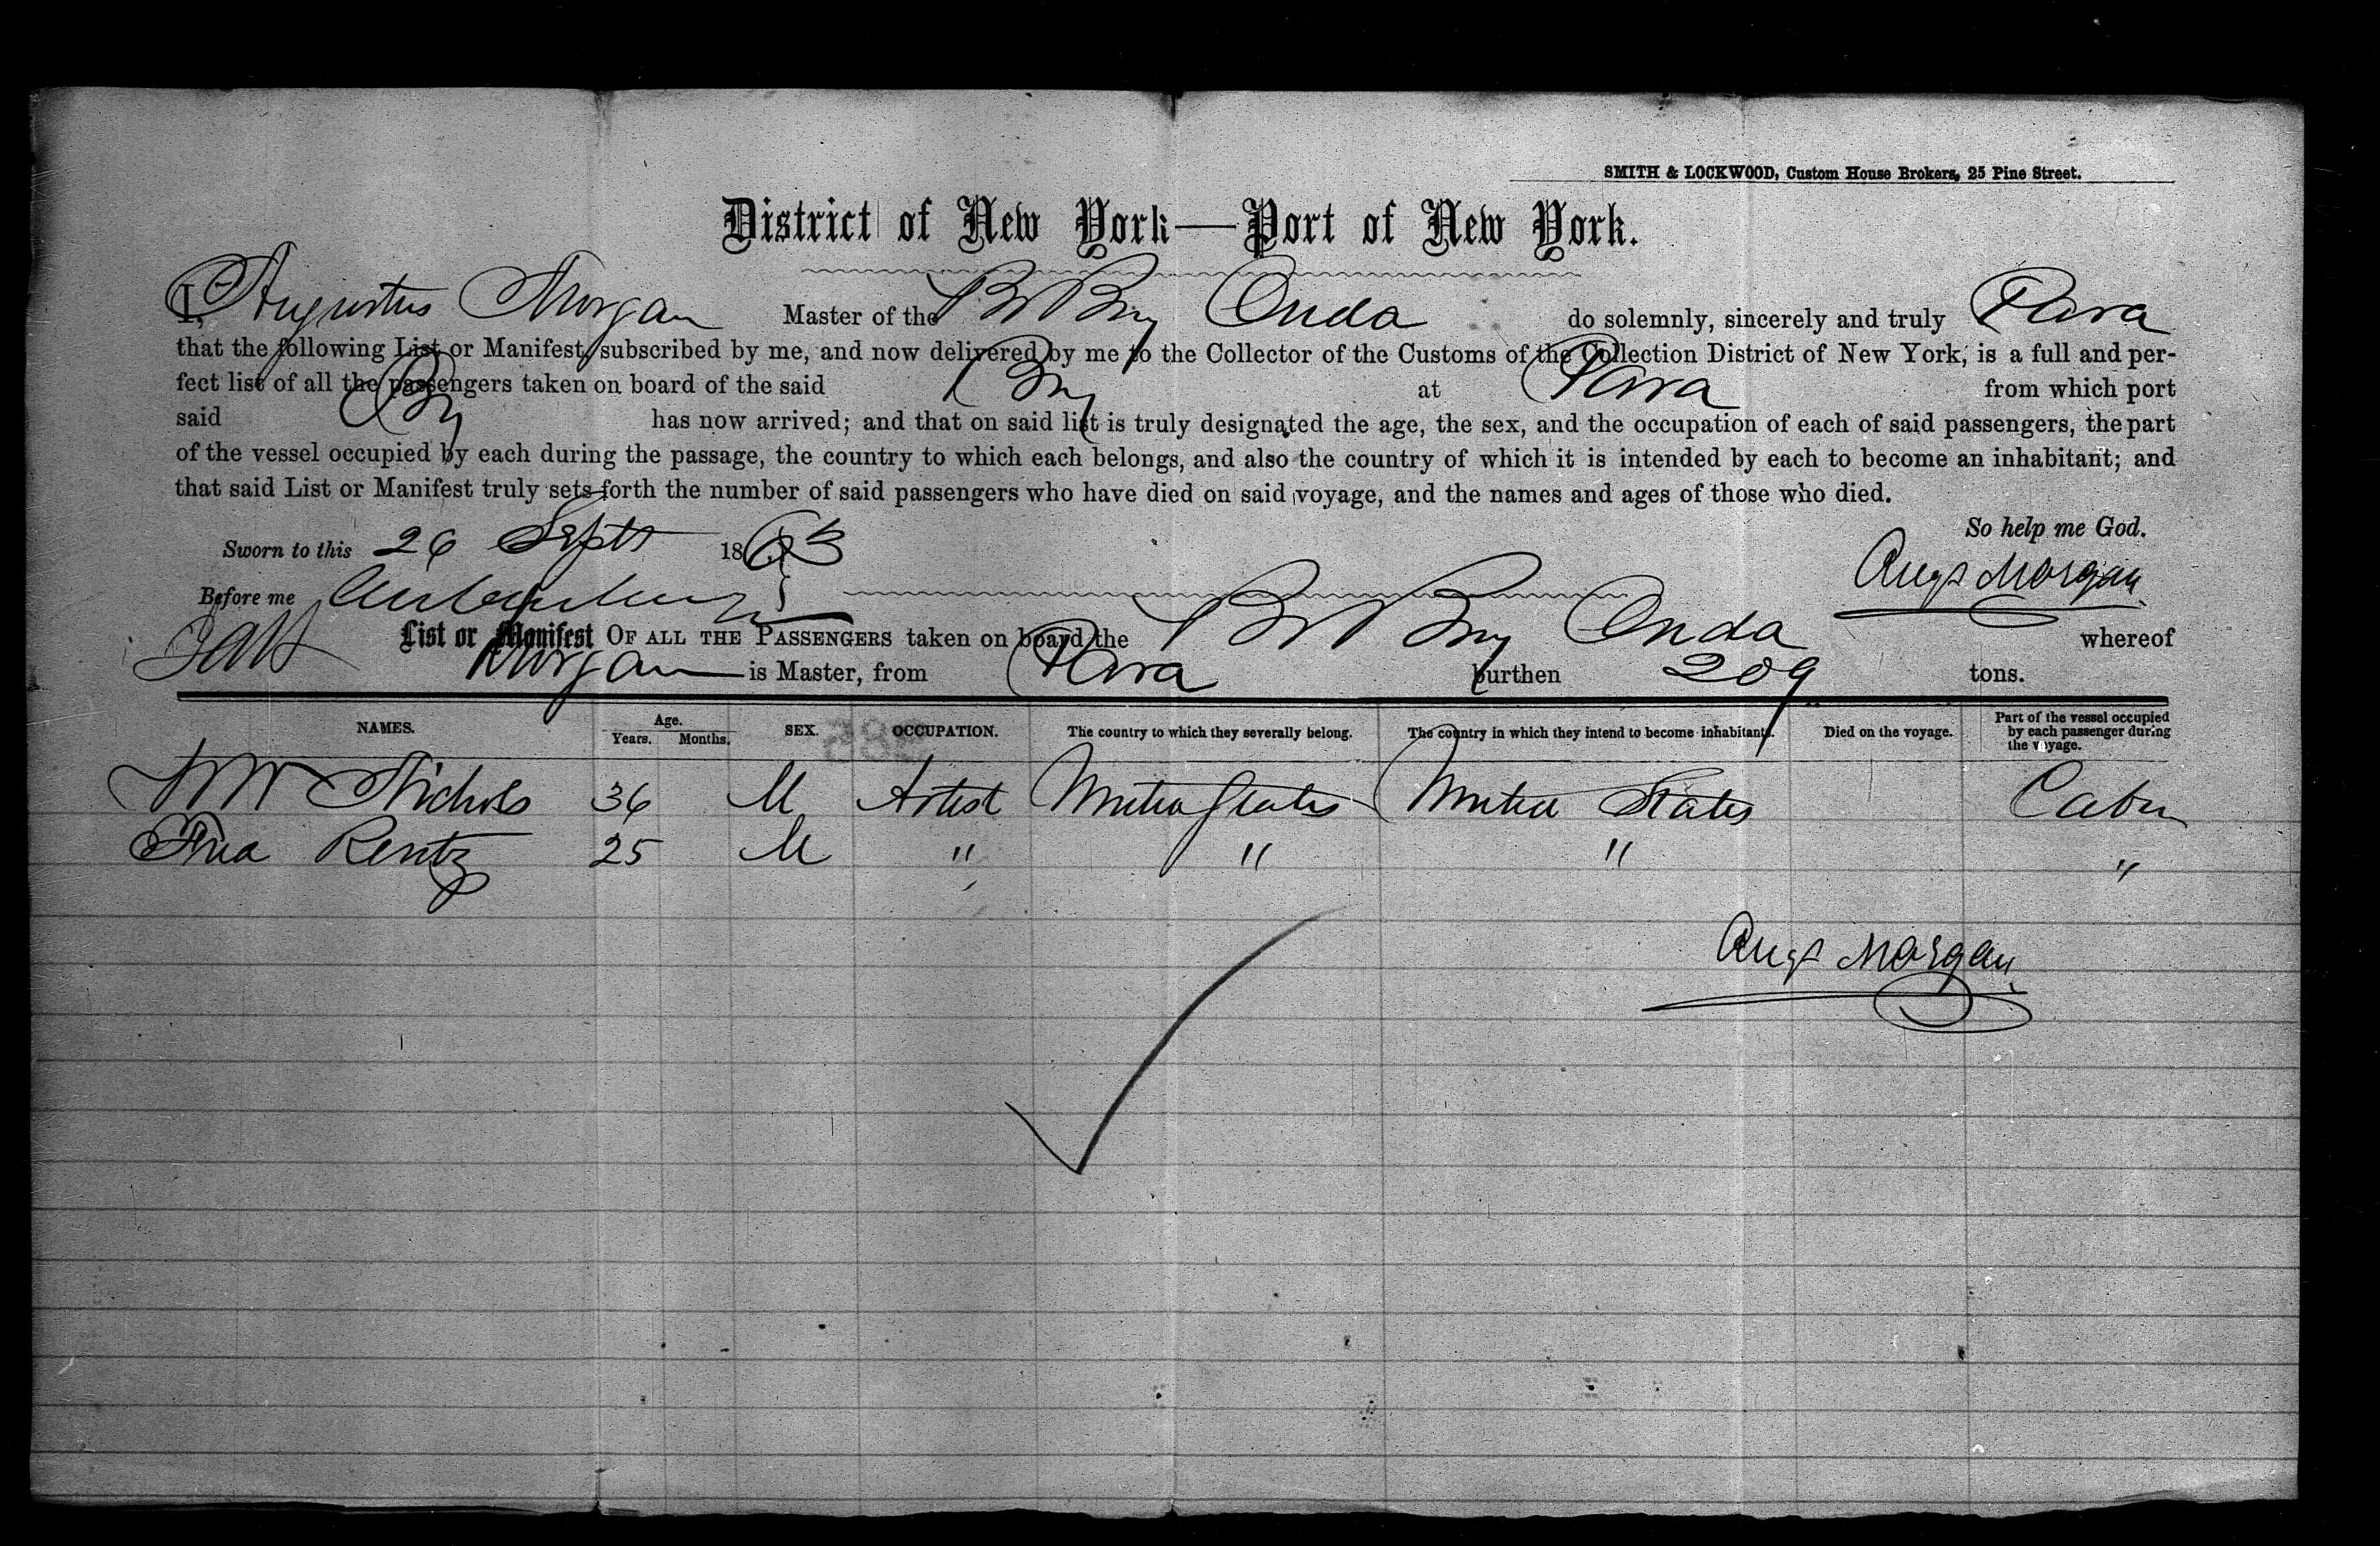 SMITH & LOCKWOOD, Custom House Brokers, 25 Pine Street.
District of New York—Port of New York.
I, Augustus Morgan Master of the Br Brig Onda do solemnly, sincerely and truly Para
that the following List or Manifest, subscribed by me, and now delivered by me to the Collector of the Customs of the Collection District of New York, is a full and per-
fect list of all the passengers taken on board of the said Brig at Para from which port
said Brig has now arrived; and that on said list is truly designated the age, the sex, and the occupation of each of said passengers, the part
of the vessel occupied by each during the passage, the country to which each belongs, and also the country of which it is intended by each to become an inhabitant; and
that said List or Manifest truly sets forth the number of said passengers who have died on said voyage, and the names and ages of those who died.
So help me God.
Sworn to this 26 Sept 1863
Augs Morgan
Before me
List or Manifest OF ALL THE PASSENGERS taken on board the Br Brig Onda whereof
Morgan is Master, from Para burthen 209 tons.
NAMES. Age. Years. Months. SEX. OCCUPATION. The country to which they severally belong. The country in which they intend to become inhabitants. Died on the voyage. Part of the vessel occupied by each passenger during the voyage.
W W Nichols 36 M Artist United States United States Cabin
Fred Rentz 25 M " " " "
Augs Morgan